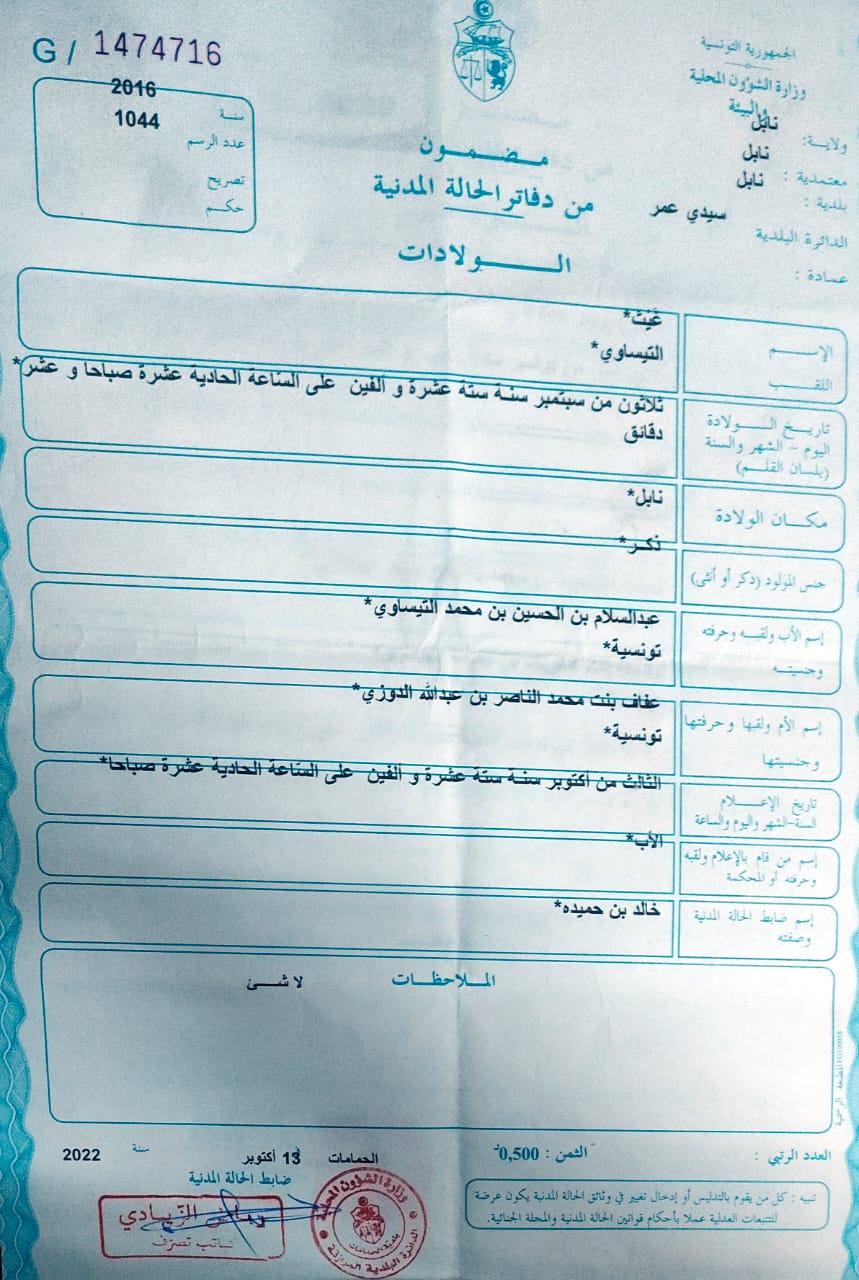 G / 1474716
الجمهورية التونسية
وزارة الشؤون المحلية
والبيئة
ولاية: نابل
معتمدية : نابل
بلدية : نابل
الدائرة البلدية سيدي عمر
عمادة :
سنة 2016
عدد الرسم 1044
تصريح
حكم
مضمون
من دفاتر الحالة المدنية
الولادات
الإسم غَيْث*
اللقب التيساوي*
تاريخ الولادة
اليوم – الشهر والسنة
(بلسان القلم)
ثلاثون من سبتمبر سنة ستة عشرة و ألفين على السّاعة الحادية عشرة صباحا و عشر*
دقائق
مكان الولادة نابل*
جنس المولود (ذكر أو أنثى) ذكر*
إسم الأب ولقبه وحرفته عبدالسلام بن الحسين بن محمد التيساوي*
وجنسيته تونسية*
إسم الأم ولقبها وحرفتها عفاف بنت محمد الناصر بن عبدالله الدوزي*
وجنسيتها تونسية*
تاريخ الإعلام
السنة-الشهر واليوم والساعة
الثالث من أكتوبر سنة ستة عشرة و ألفين على السّاعة الحادية عشرة صباحا*
إسم من قام بالإعلام ولقبه
وحرفته أو المحكمة
الأب*
إسم ضابط الحالة المدنية
وصفته
خالد بن حميده*
الملاحظات لا شئ
العدد الرتبي : الثمن : 0,500
الحمامات في 13 أكتوبر سنة 2022
ضابط الحالة المدنية
تنبيه : كل من يقوم بالتدليس أو إدخال تغيير في وثائق الحالة المدنية يكون عرضة
للتتبعات العدلية عملا بأحكام قوانين الحالة المدنية والمجلة الجنائية.
الزيادي
كاتب تصرف
وزارة الشؤون المحلية
بلدية الحمامات
الدائرة البلدية
المطبعة الرسمية